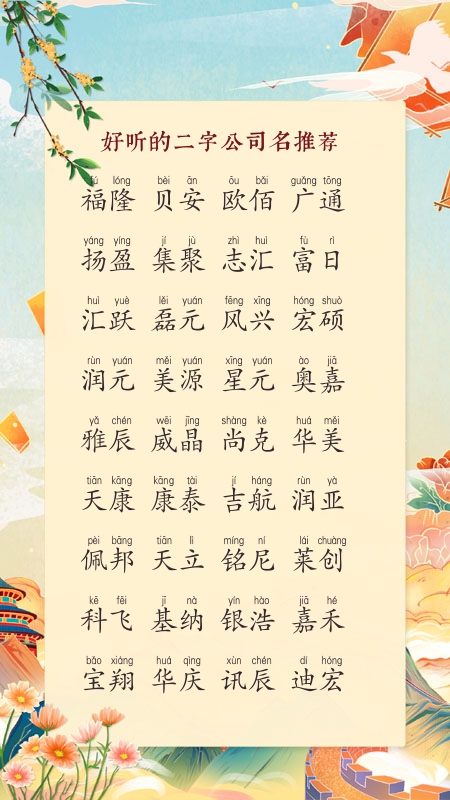 好听的二字公司名推荐
fú lóng bèi ān ōu bǎi guǎng tōng
福隆 贝安 欧佰 广通
yáng yíng jí jù zhì huì fù rì
扬盈 集聚 志汇 富日
huì yuè lěi yuán fēng xīng hóng shuò
汇跃 磊元 风兴 宏硕
rùn yuán měi yuán xīng yuán ào jiā
润元 美源 星元 奥嘉
yǎ chén wēi jīng shàng kè huá měi
雅辰 威晶 尚克 华美
tiān kāng kāng tài jí háng rùn yà
天康 康泰 吉航 润亚
pèi bāng tiān lì míng ní lái chuàng
佩邦 天立 铭尼 莱创
kē fēi jī nà yín hào jiā hé
科飞 基纳 银浩 嘉禾
bǎo xiáng huá qìng xùn chén dí hóng
宝翔 华庆 讯辰 迪宏